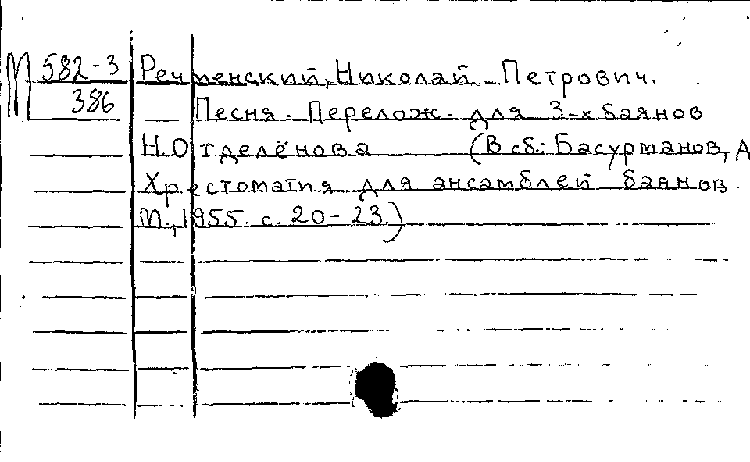 М 582-3 Речменский, Николай Петрович.
386 Песня. Перелож. для 3-х баянов
Н. Отделёнова (В сб.: Басурманов, А
Хрестоматия для ансамблей баянов
М., 1955. с. 20-23)